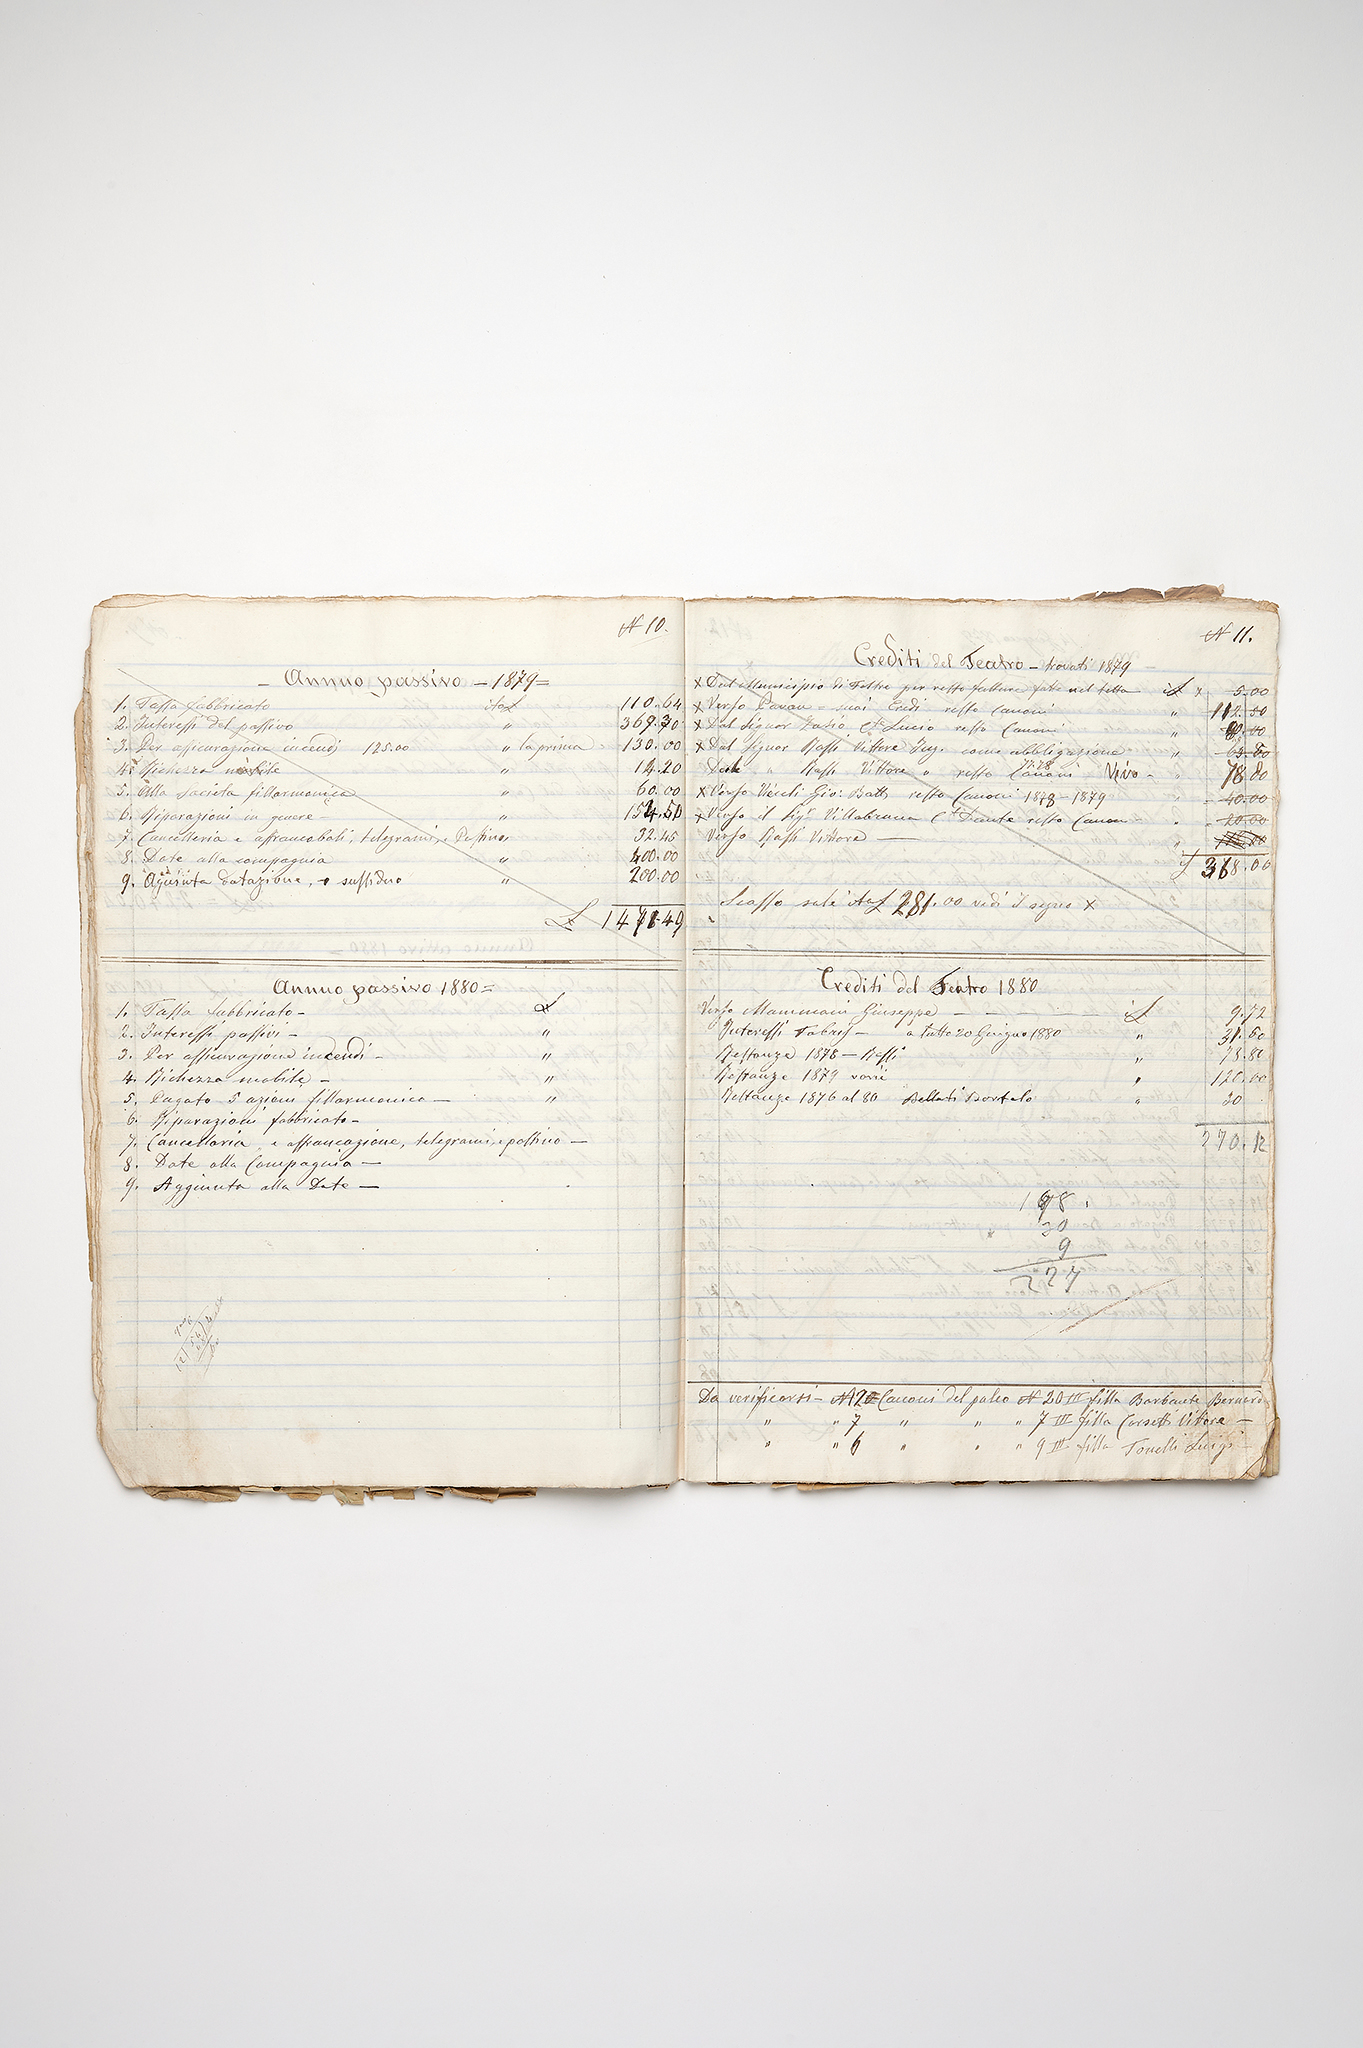 N 10.
– Annuo passivo – 1879 =
1. Tassa fabbricato ital 110.64
2. Interessi del passivo " 369.70
3. Per assicurazione incendi 125.00 " la prima 130.00
4. Richezza mobile " 14.20
5. Alla società fillarmonica " 60.00
6. Riparazioni in genere – " 154.50
7. Cancelleria e affrancaboli, telegrami, e Postino " 32.45
8. Dote alla compagnia " 400.00
9. Agiunta dotazione, o sussidio " 200.00
£ 1471.49
Annuo passivo 1880 =
1. Tassa fabbricato – £
2. Interessi passivi – "
3. Per assicurazione incendi – "
4. Richezza mobile – "
5. Pagato 5 azioni fillarmonica – "
6. Riparazioni fabbricato –
7. Cancellaria e affrancazione, telegrami, e postino –
8. Dote alla Compagnia –
9. Aggiunta alla Dote –
N 11.
Crediti del Teatro – trovati 1879
x Dal Municipio di Feltre per resto fatture fate nel tetto i£ x 5.00
x Verso Pavan e suoi Eredi resto Canoni " 112.50
x Dal Signor Zasio Cte Lucio resto Canoni "
x Dal Signor Rassi Vittore Ing. come obbligazione "
" Rassi Vittore " resto Canoni 77.78 Vivo – " 78.80
x Verso Gio: Batta resto Canoni 1878 – 1879 " 40.00
x Verso il Sigr Villabruna Cte Dante resto Canon " 20.00
Verso Rassi Vittore "
£ 368.00
Scosso sole It£ 281.00 vedi il segno x
Crediti del Teatro 1880
Verso Mammani Giuseppe – i£ 9.72
Interessi Fabris – a tutto 20 Giugno 1880 " 31.60
Restanze 1878 – Rassi " 78.80
Restanze 1879 varii " 120.00
Restanze 1876 al 80 Bellati Bortolo " 30
270.12
198.
30
9
227
Da verificarsi – N 20 Canoni del palco N 20 III filla Barbante Bernardo
" " 7 " " " 7 III filla Corsetti Vittore –
" " 6 " " " 9 III filla Tonelli Luigi –